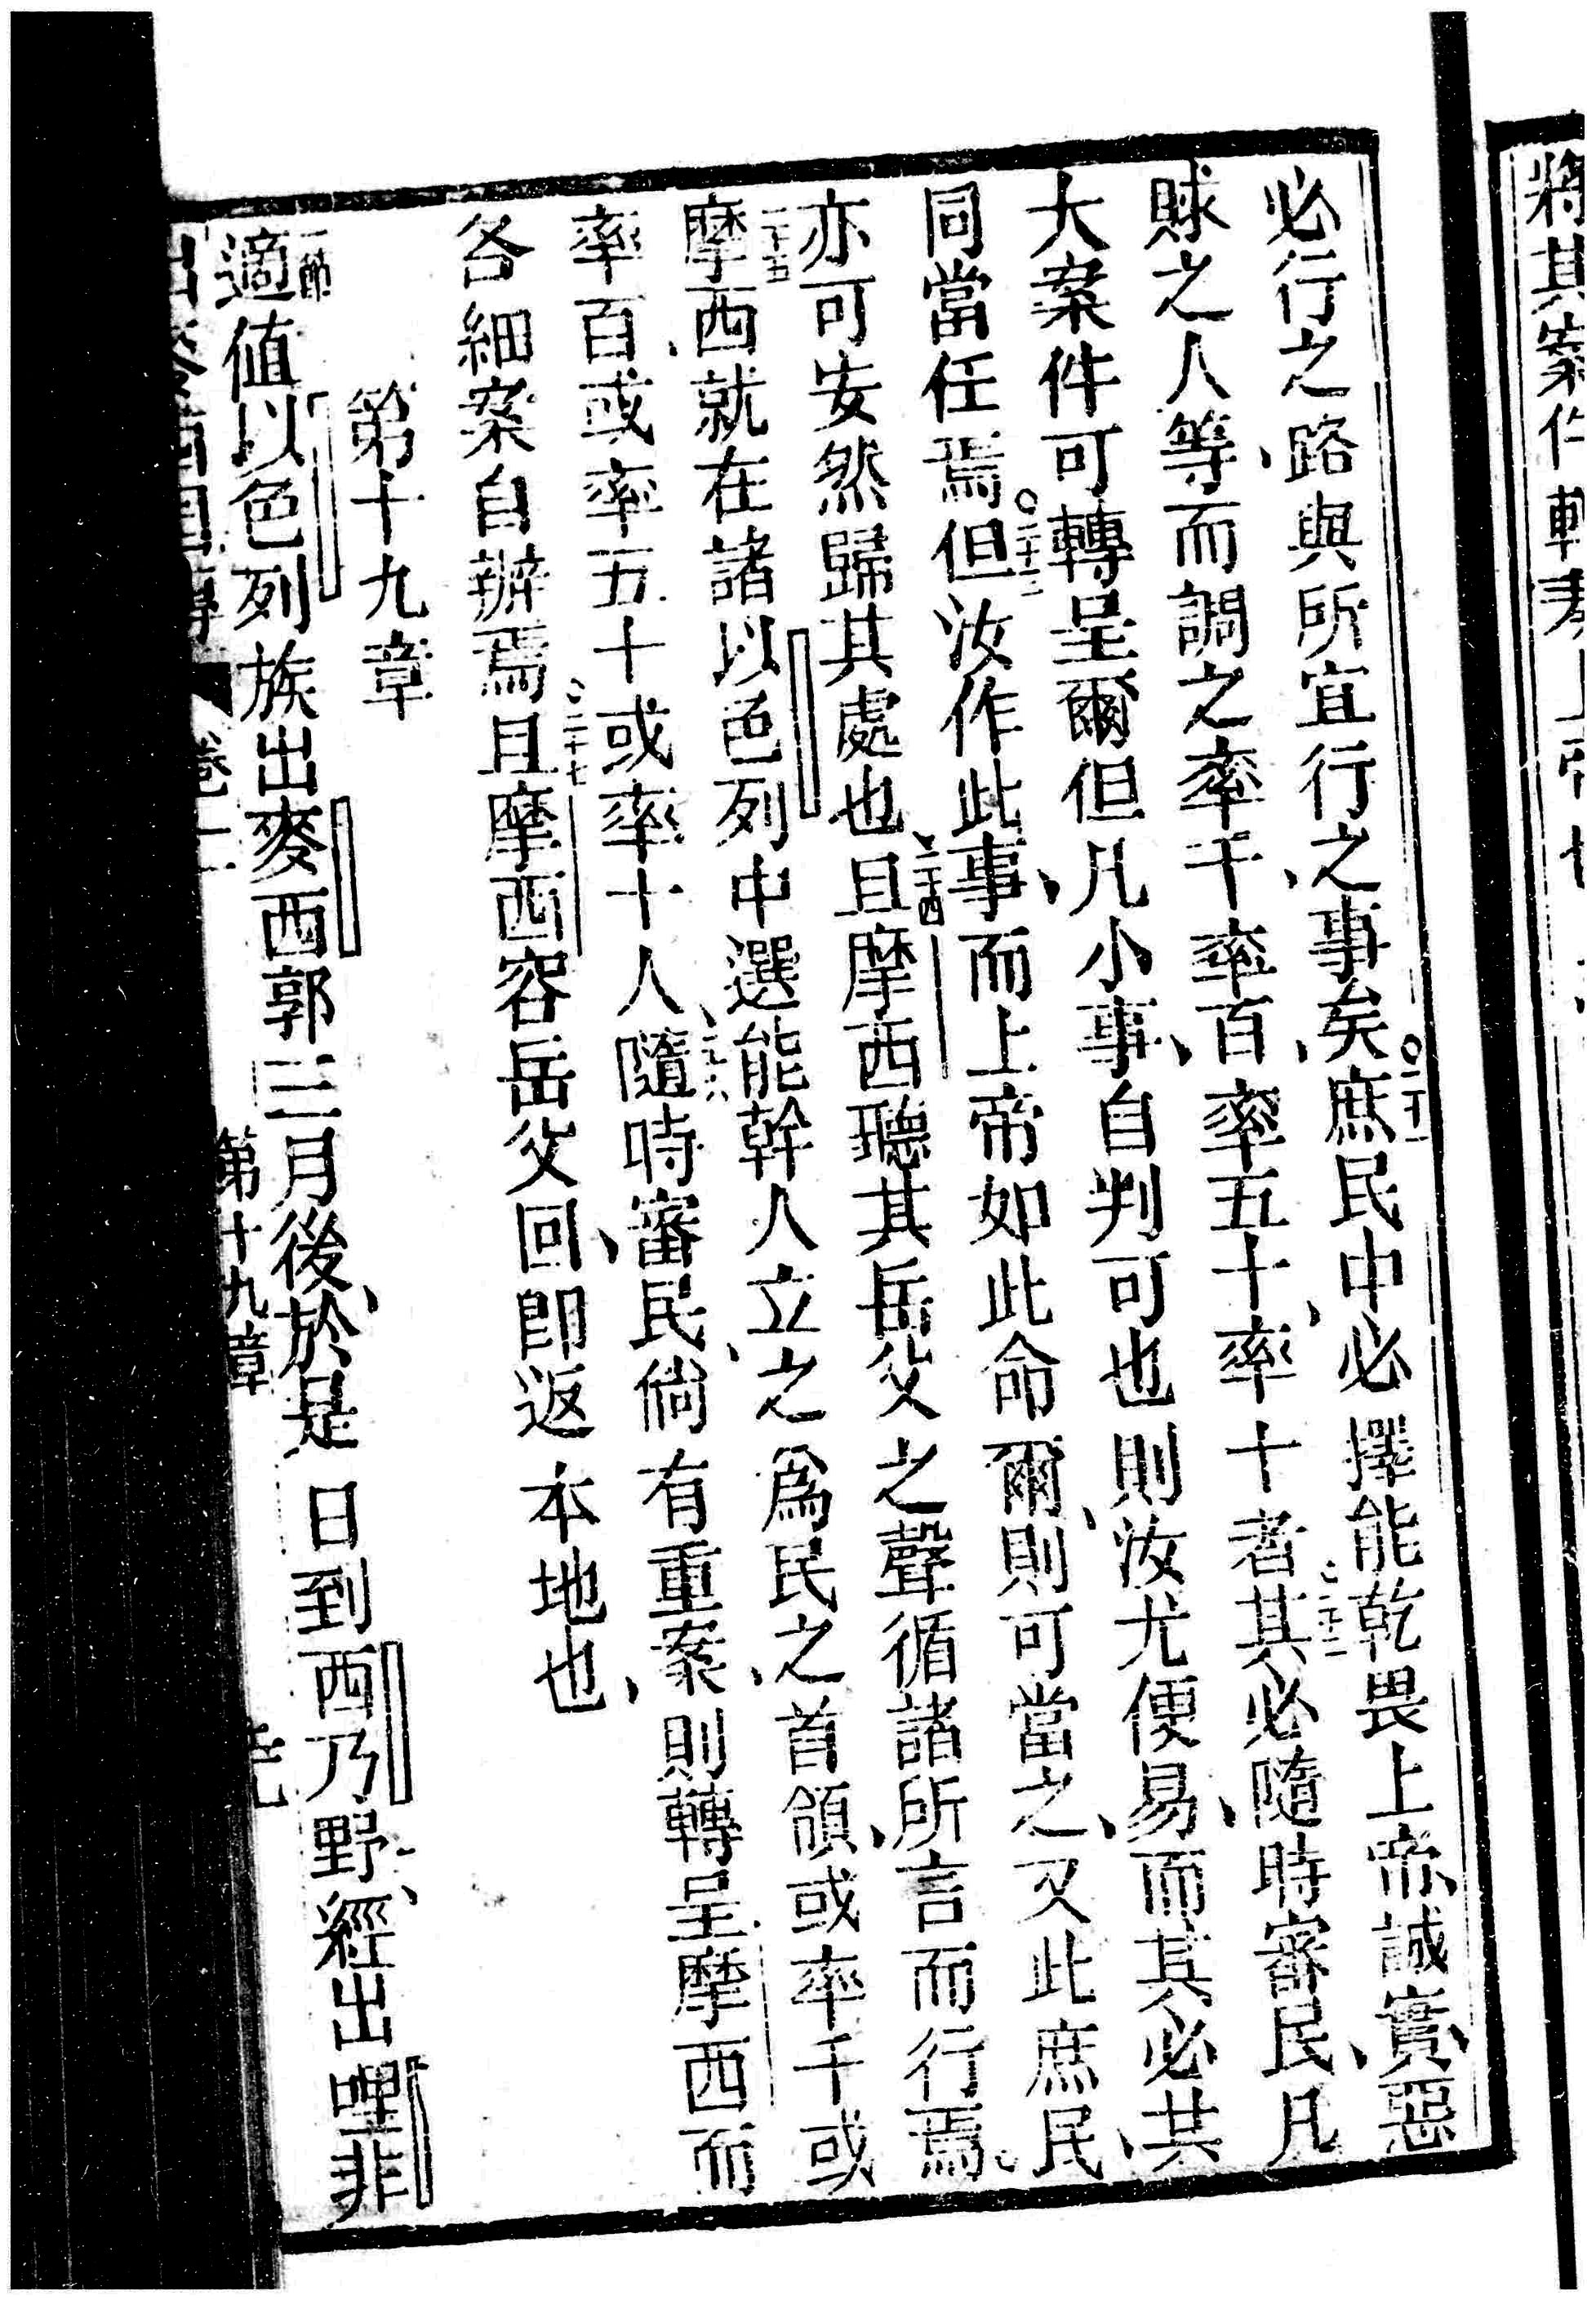 將其案件轉奏上帝也
必行之路與所宜行之事矣○二十一庶民中必擇能乾畏上帝誠實惡
賕之人等、而調之率千、率百、率五十、率十者、二十二其必隨時審民、凡
大案件可轉呈爾、但凡小事、自判可也、則汝尤便易、而其必共
同當任焉○二十三但汝作此事、而上帝如此命爾、則可當之、又此庶民、
亦可安然歸其處也、二十四且摩西聽其岳父之聲、循諸所言而行焉、
二十五摩西就在諸以色列中選能幹人、立之爲民之首領、或率千或
率百、或率五十、或率十人、二十六隨時審民、倘有重案、則轉呈摩西、而
各細案自辦焉、二十七且摩西容岳父回、即返本地也、
第十九章
一節適值以色列族出麥西郭三月後、於是日到西乃野、二經出哩非
出麥西國傳 卷二 第十九章